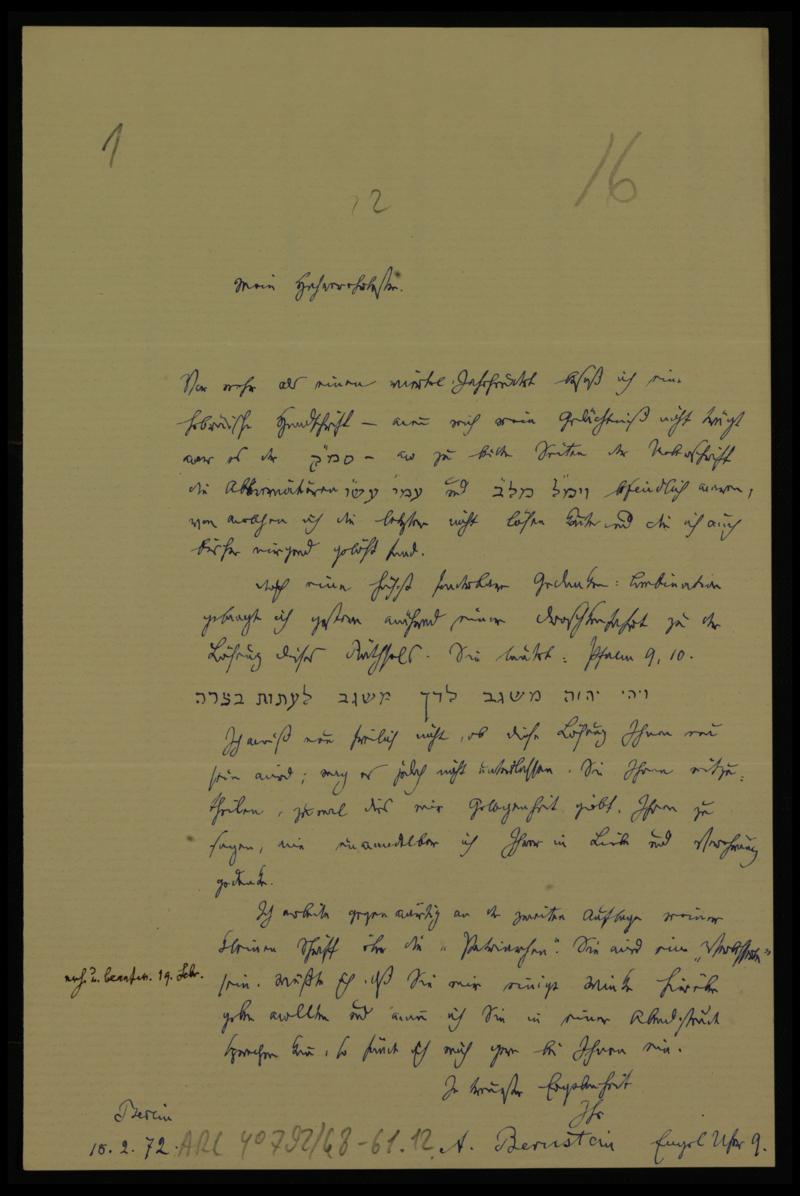 1
16
22
Mein Hochverehrtester.
Vor mehr als einem viertel-Jahrhundert besaß ich eine
hebräische Handschrift — wenn mich mein Gedächtniß nicht trügt
war es der סמ״ק — wo zu beiden Seiten der Ueberschrift
die Abbreviaturen עמי עש״ו und וימל מלב befindlich waren,
von welchen ich die letztere nicht lösen konnte und die ich auch
bisher nirgend gelöst fand.
Durch eine höchst sonderbare Gedanken-Combination
gelangte ich gestern während einer Droschkenfahrt zu der
Lösung dieses Räthsels. Sie lautet: Psalm 9, 10.
ויהי יהוה משגב לדך משגב לעתות בצרה
Ich weiß nun freilich nicht, ob diese Lösung Ihnen neu
sein wird; mag es jedoch nicht unterlassen. Sie Ihnen mitzu-
theilen, zumal dies mir Gelegenheit giebt, Ihnen zu
sagen, wie unwandelbar ich Ihrer in Liebe und Verehrung
gedenke.
Ich arbeite gegenwärtig an der zweiten Auflage meiner
kleinen Schrift über die „Patriarchen". Sie wird eine
sein. Wüßte ich, daß Sie mir einige Winke hierüber
geben wollten und wann ich Sie in einer Abendstunde
sprechen kann, so fände ich mich gern bei Ihnen ein.
beantw. 19. Febr.
In treuster Ergebenheit
Ihr
Berlin
15. 2. 72. ARC 4° 792/G8-61.12. A. Bernstein Engel Ufer 9.